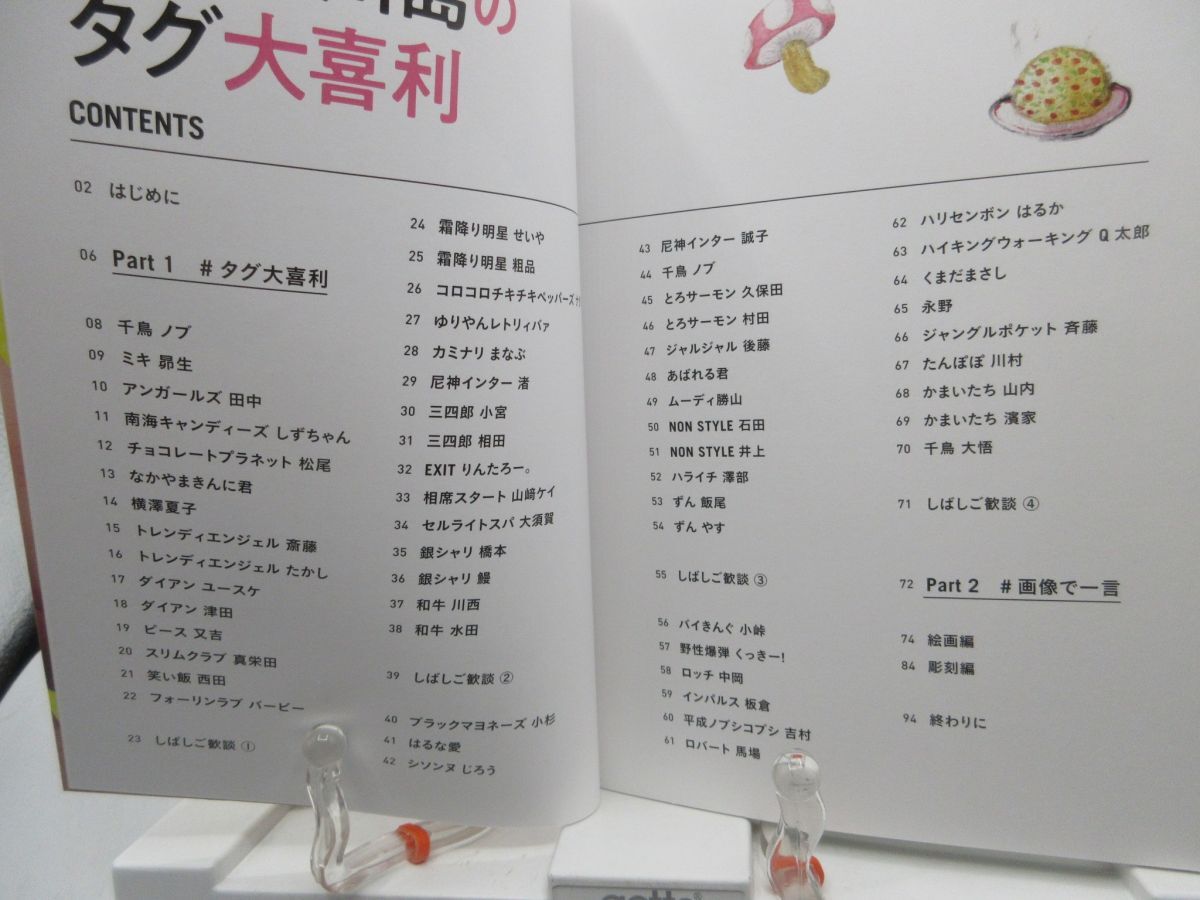 島の
タグ大喜利
CONTENTS
02 はじめに
06 Part 1 #タグ大喜利
08 千鳥 ノブ
09 ミキ 昴生
10 アンガールズ 田中
11 南海キャンディーズ しずちゃん
12 チョコレートプラネット 松尾
13 なかやまきんに君
14 横澤夏子
15 トレンディエンジェル 斎藤
16 トレンディエンジェル たかし
17 ダイアン ユースケ
18 ダイアン 津田
19 ピース 又吉
20 スリムクラブ 真栄田
21 笑い飯 西田
22 フォーリンラブ バービー
23 しばしご歓談 ①
24 霜降り明星 せいや
25 霜降り明星 粗品
26 コロコロチキチキペッパーズ
27 ゆりやんレトリィバァ
28 カミナリ まなぶ
29 尼神インター 渚
30 三四郎 小宮
31 三四郎 相田
32 EXIT りんたろー。
33 相席スタート 山﨑ケイ
34 セルライトスパ 大須賀
35 銀シャリ 橋本
36 銀シャリ 鰻
37 和牛 川西
38 和牛 水田
39 しばしご歓談 ②
40 ブラックマヨネーズ 小杉
41 はるな愛
42 シソンヌ じろう
43 尼神インター 誠子
44 千鳥 ノブ
45 とろサーモン 久保田
46 とろサーモン 村田
47 ジャルジャル 後藤
48 あばれる君
49 ムーディ勝山
50 NON STYLE 石田
51 NON STYLE 井上
52 ハライチ 澤部
53 ずん 飯尾
54 ずん やす
55 しばしご歓談 ③
56 バイきんぐ 小峠
57 野性爆弾 くっきー!
58 ロッチ 中岡
59 インパルス 板倉
60 平成ノブシコブシ 吉村
61 ロバート 馬場
62 ハリセンボン はるか
63 ハイキングウォーキング Q太郎
64 くまだまさし
65 永野
66 ジャングルポケット 斉藤
67 たんぽぽ 川村
68 かまいたち 山内
69 かまいたち 濱家
70 千鳥 大悟
71 しばしご歓談 ④
72 Part 2 #画像で一言
74 絵画編
84 彫刻編
94 終わりに